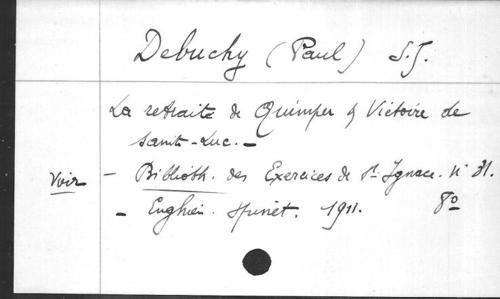 Debuchy (Paul) S.J.
La retraite de Quimper & Victoire de
Saint-Luc. -
Voir - Biblioth. des Exercices de St Ignace. n° 31.
- Enghien. Spinet. 1911. 8°